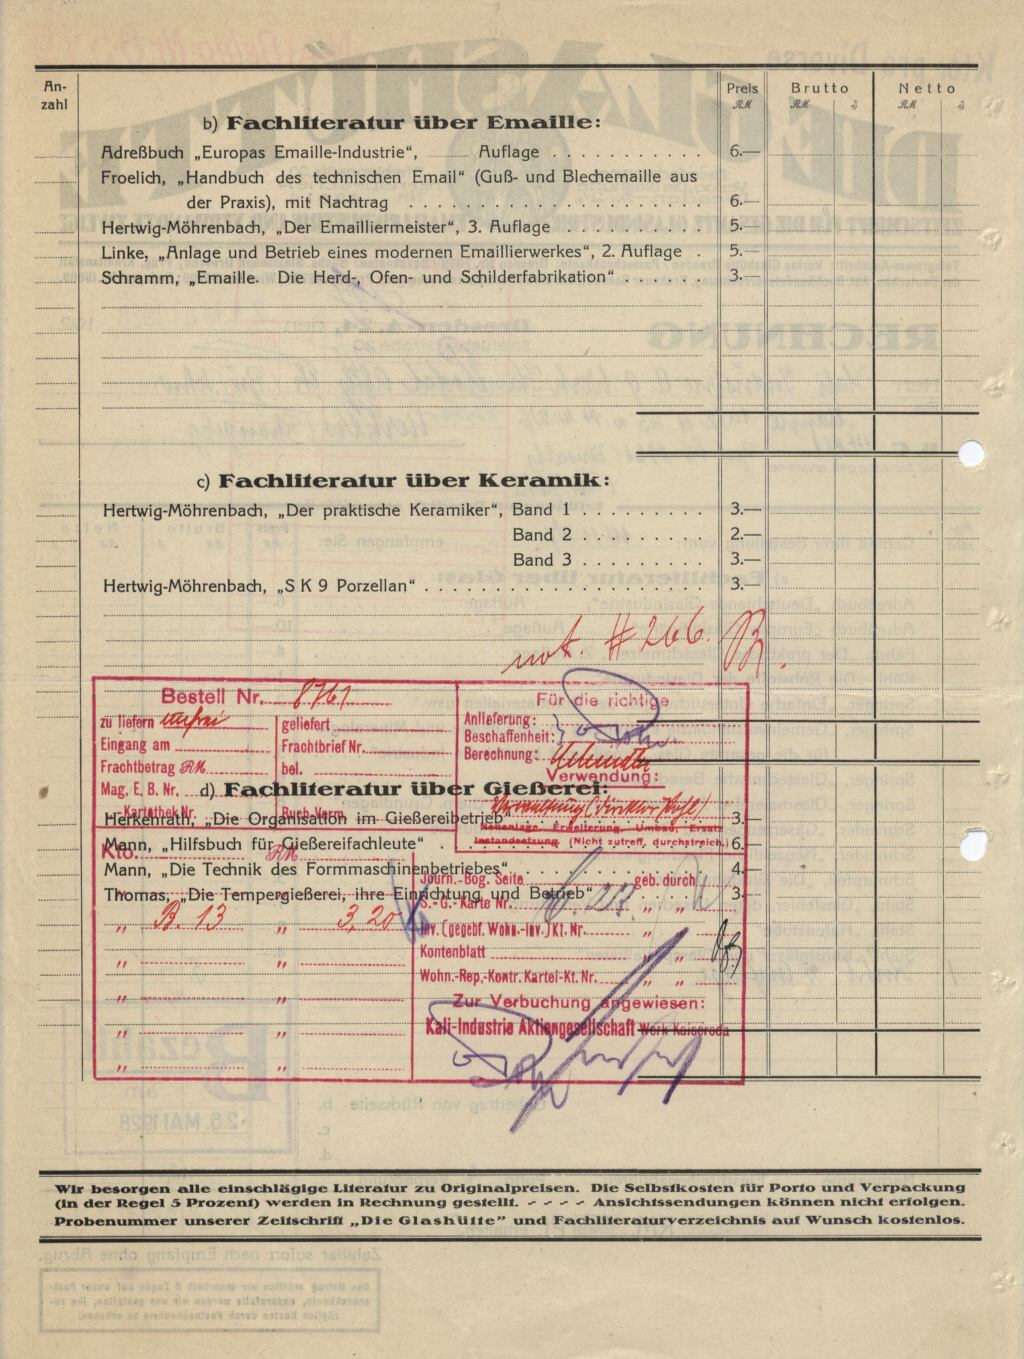 An-
zahl
Preis
RM
Brutto
RM
Netto
RM
b) Fachliteratur über Emaille:
Adreßbuch „Europas Emaille-Industrie“, ........ Auflage . . . . . . . . . . . 6.—
Froelich, „Handbuch des technischen Email“ (Guß- und Blechemaille aus
der Praxis), mit Nachtrag . . . . . . . . . . . . . . . . . . . . . 6.—
Hertwig-Möhrenbach, „Der Emailliermeister“, 3. Auflage . . . . . . . . . . . 5.—
Linke, „Anlage und Betrieb eines modernen Emaillierwerkes“, 2. Auflage . 5.—
Schramm, „Emaille. Die Herd-, Ofen- und Schilderfabrikation“ . . . . . . 3.—
c) Fachliteratur über Keramik:
Hertwig-Möhrenbach, „Der praktische Keramiker“, Band 1 . . . . . . . . . 3.—
Band 2 . . . . . . . . . 2.—
Band 3 . . . . . . . . . 3.—
Hertwig-Möhrenbach, „S K 9 Porzellan“ . . . . . . . . . . . . . . . . . . . . 3.—
not. # 266.
Bestell Nr. 8761
zu liefern unfrei
geliefert
Eingang am
Frachtbrief Nr.
Frachtbetrag RM
bel.
Mag. E. B. Nr.
-Kartothek Nr.
Buch-Verm.
Für die richtige
Anlieferung:
Beschaffenheit:
Berechnung:
Verwendung:
Verwaltung
Neuanlage, Erweiterung, Umbau, Ersatz
Instandsetzung (Nicht zutreff. durchstreich.)
d) Fachliteratur über Gießerei:
Herkenrath, „Die Organisation im Gießereibetrieb“ 3.—
Mann, „Hilfsbuch für Gießereifachleute“ . . . . . . . . . . . . . . . . . . 6.—
Mann, „Die Technik des Formmaschinenbetriebes“ . . . . . . . . . . . . . 4.—
Thomas, „Die Tempergießerei, ihre Einrichtung und Betrieb“ . . . . . . . 3.—
Kto. RM
„ B. 13 „ 3,20
„ „
„ „
„ „
„ „
Journ.-Bog. Seite geb. durch
S.-G.-Karte Nr. „ „
Inv. (gegebf. Wohn.-Inv.) Kt. Nr. „ „
Kontenblatt „ „
Wohn.-Rep.-Kontr. Kartei-Kt. Nr. „ „
Zur Verbuchung angewiesen:
Kali-Industrie Aktiengesellschaft Werk Kaiseroda
Wir besorgen alle einschlägige Literatur zu Originalpreisen. Die Selbstkosten für Porto und Verpackung
(in der Regel 5 Prozent) werden in Rechnung gestellt. ~ ~ ~ ~ Ansichtssendungen können nicht erfolgen.
Probenummer unserer Zeitschrift „Die Glashütte“ und Fachliteraturverzeichnis auf Wunsch kostenlos.